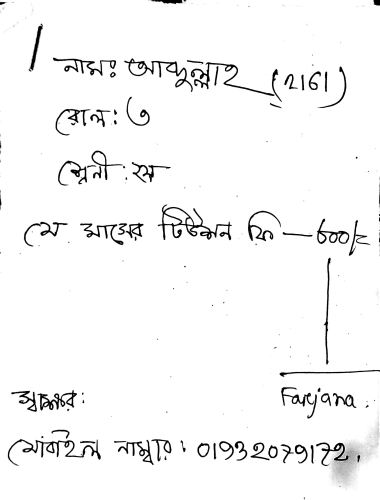 নামঃ আব্দুল্লাহ (2161)
রোল: ৩
শ্রেনী: ২য়
মে মাসের টিউশন ফি — ৮০০/=
স্বাক্ষর: Farjana.
মোবাইল নাম্বার: 01932079172.